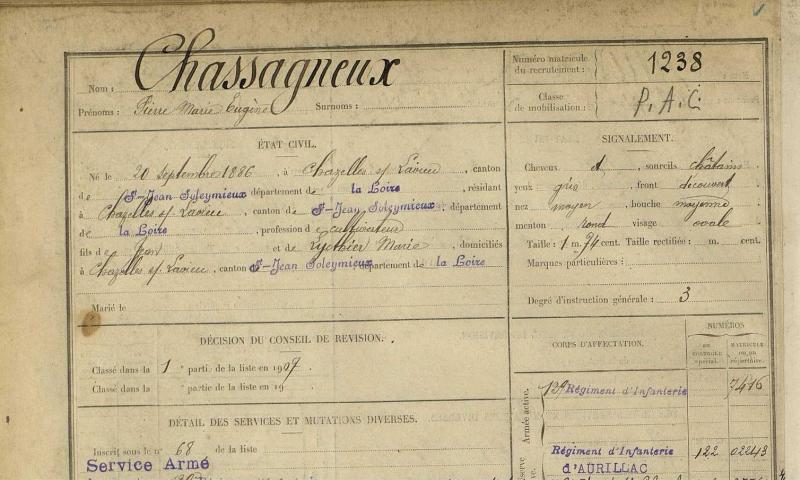 Nom : Chassagneux
Prénoms : Pierre Marie Eugène Surnoms :
Numéro matricule
du recrutement : 1238
Classe
de mobilisation : P. A. C.
ÉTAT CIVIL.
Né le 20 septembre 1886, à Chazelles s/ Lavieu, canton
de St-Jean Soleymieux département de la Loire, résidant
à Chazelles s/ Lavieu, canton de St-Jean Soleymieux, département
de la Loire, profession de cultivateur
fils de Jean et de Marie, domiciliés
à Chazelles s/ Lavieu, canton St-Jean Soleymieux département de la Loire
Marié le
SIGNALEMENT.
Cheveux et, sourcils châtains
yeux gris, front découvert
nez moyen, bouche moyenne
menton rond visage ovale
Taille : 1 m. 74 cent. Taille rectifiée : m. cent.
Marques particulières :
Degré d'instruction générale : 3
DÉCISION DU CONSEIL DE REVISION.
Classé dans la 1 partie de la liste en 1907.
Classé dans la partie de la liste en 19
DÉTAIL DES SERVICES ET MUTATIONS DIVERSES.
Inscrit sous le n° 68 de la liste
Service Armé
CORPS D'AFFECTATION.
NUMÉROS
AU CONTRÔLE spécial.
MATRICULE ou au répertoire.
Armée active.
139 Régiment d'Infanterie 7416
Régiment d'Infanterie 122 02243
d'AURILLAC